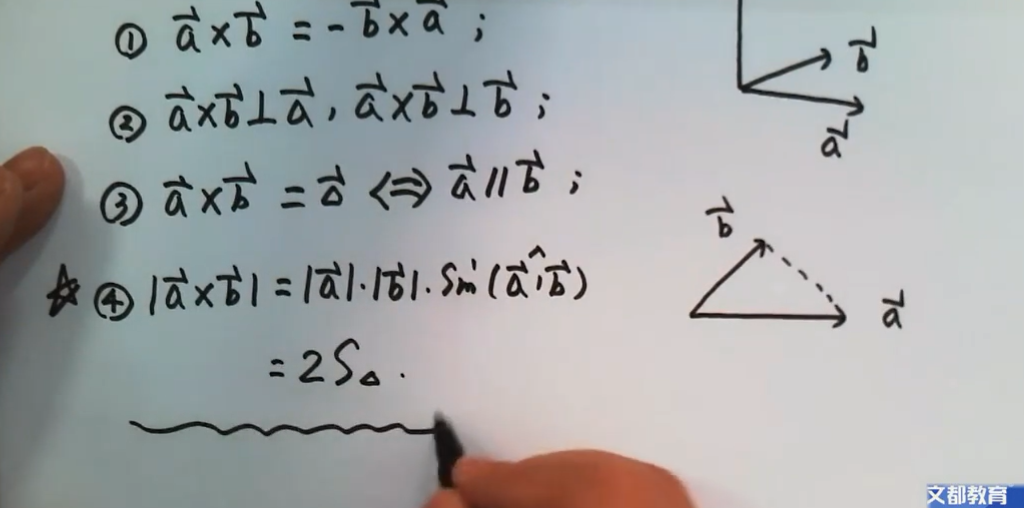 ① a⃗×b⃗ = -b⃗×a⃗ ;
② a⃗×b⃗⊥a⃗, a⃗×b⃗⊥b⃗ ;
③ a⃗×b⃗ = 0⃗ ⇔ a⃗∥b⃗ ;
☆ ④ |a⃗×b⃗| = |a⃗|·|b⃗|·Sin(a⃗^,b⃗)
= 2S△.
b⃗
a⃗
b⃗
a⃗
文都教育